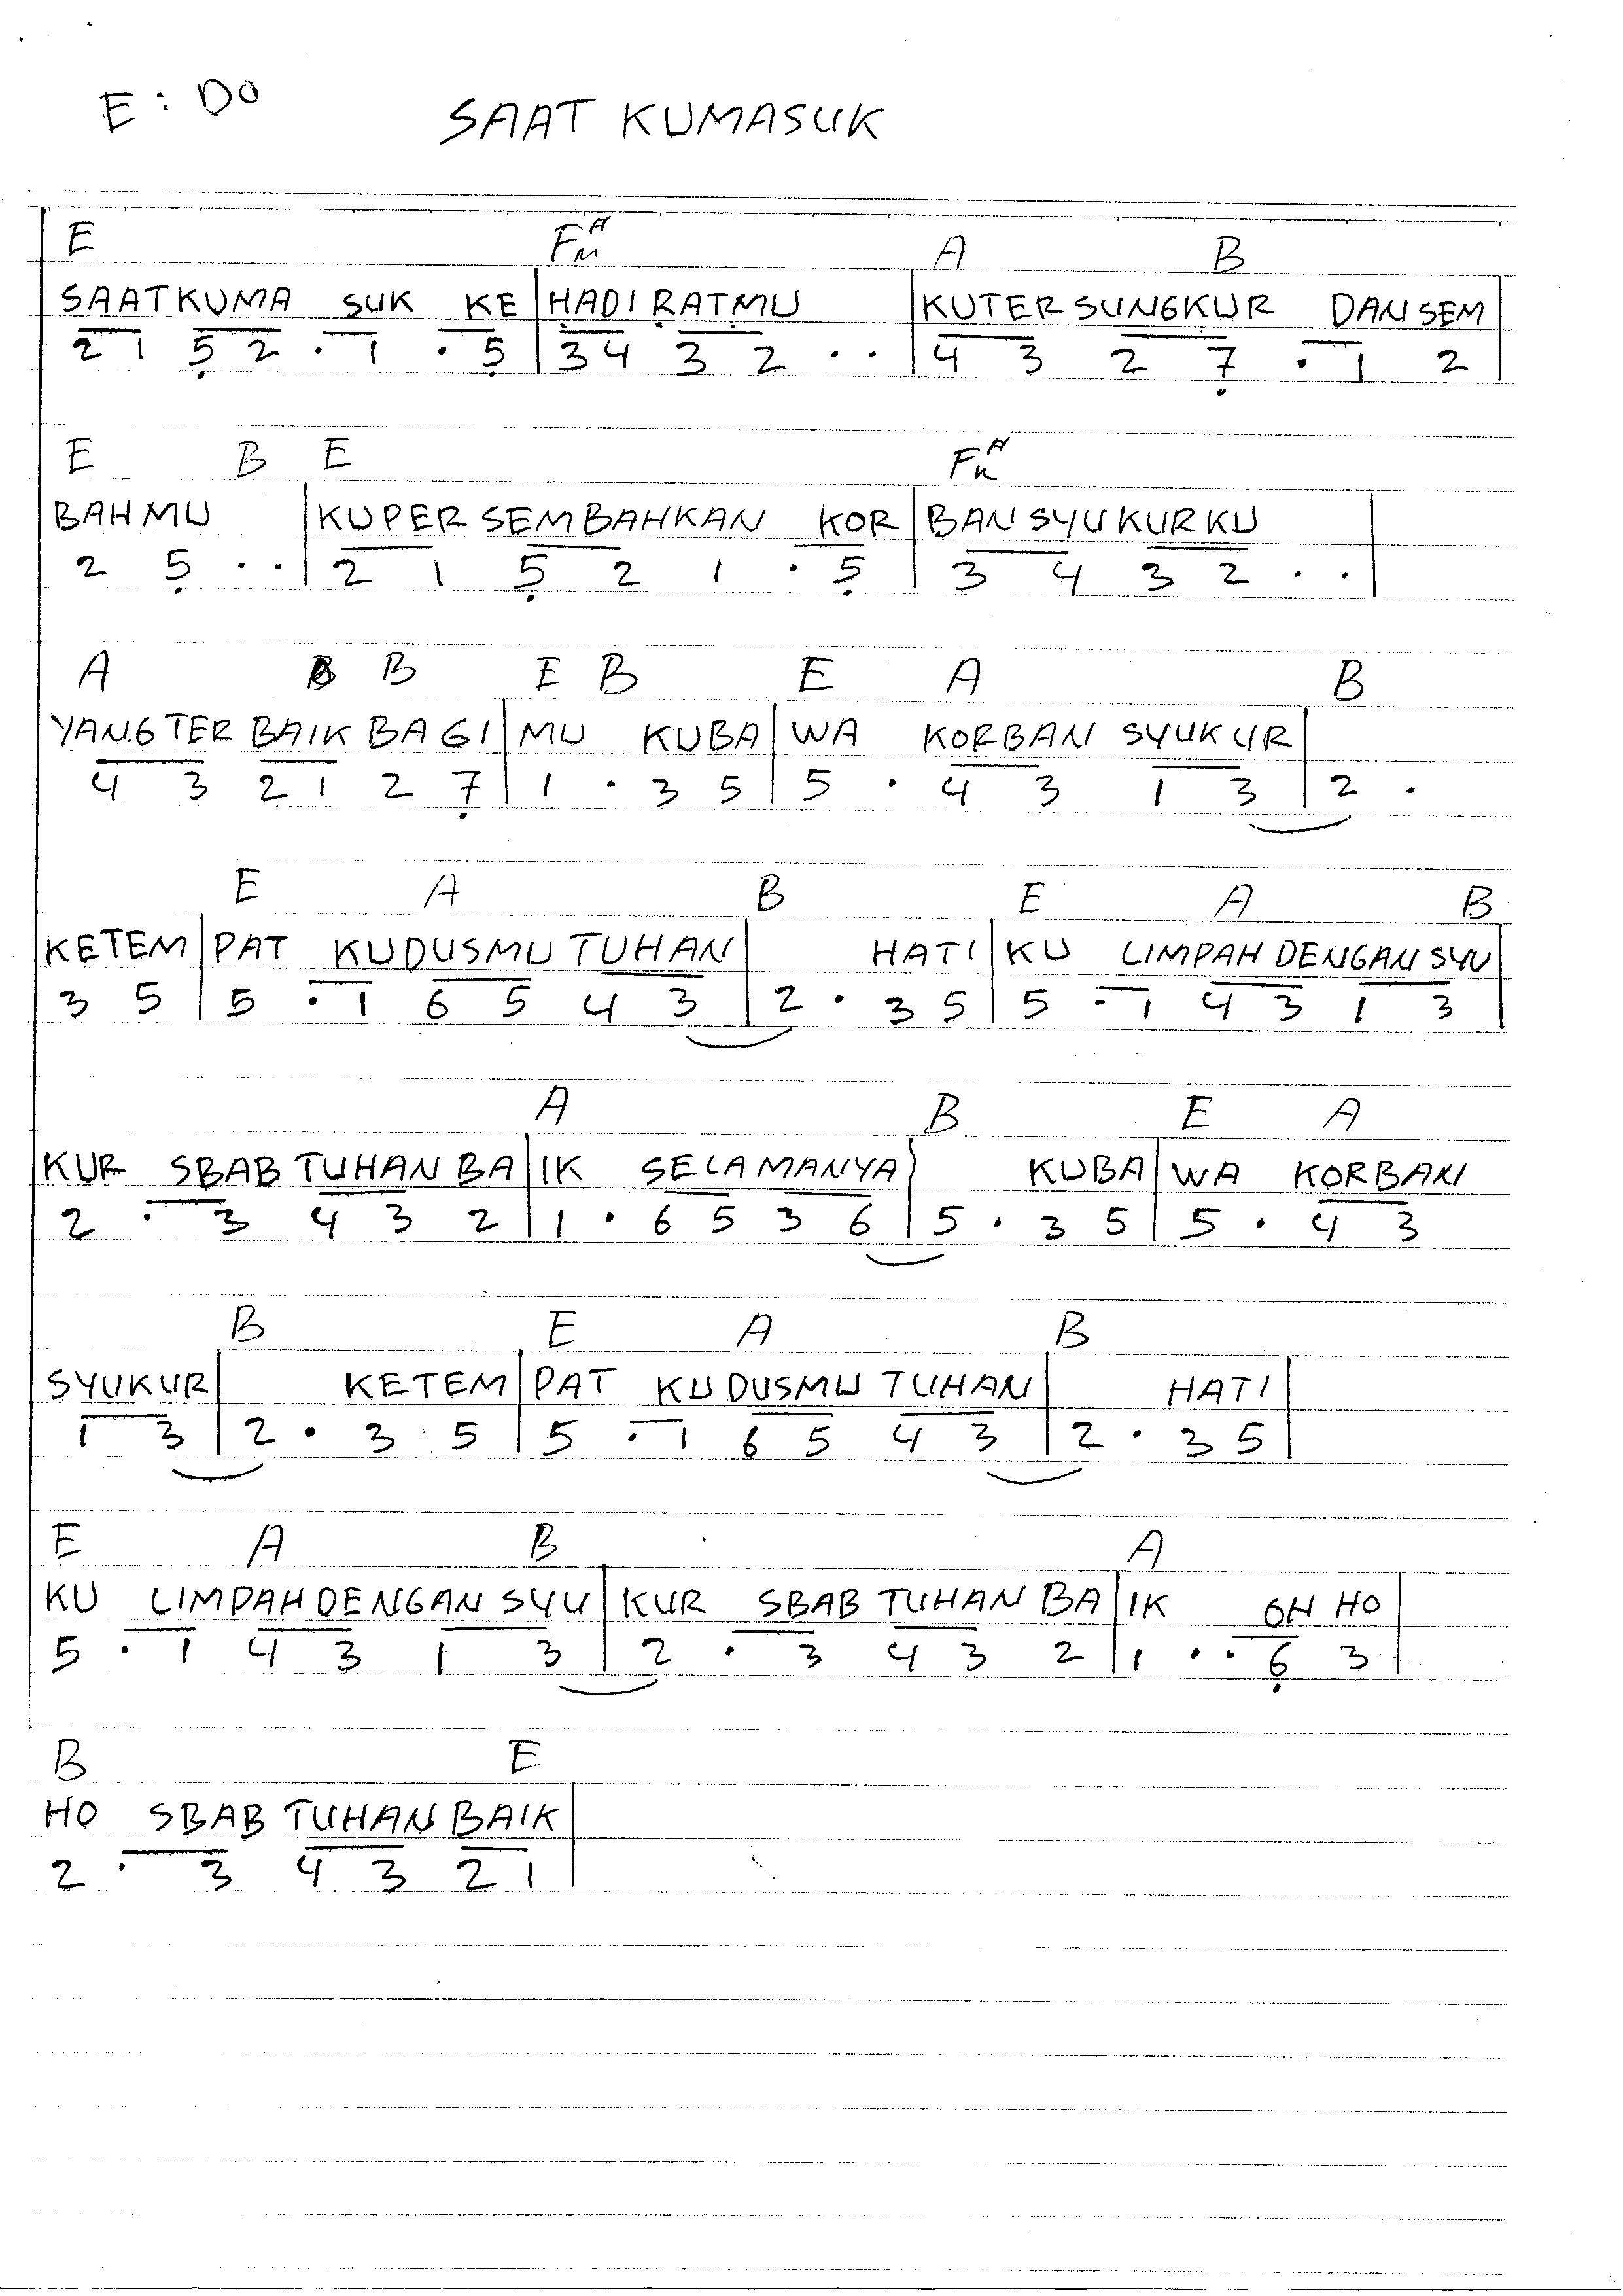 E : DO
SAAT KUMASUK
E Fm A A B
SAATKUMA SUK KE | HADIRATMU | KUTERSUNGKUR DANSEM
2 1 5̣ 2 . 1 . 5̣ | 3 4 3 2 . . | 4 3 2 7̣ . 1 2 |
E B E Fm A
BAHMU | KUPERSEMBAHKAN KOR | BANSYUKURKU
2 5̣ . . | 2 1 5̣ 2 1 . 5̣ | 3 4 3 2 . . |
A B E B E A B
YANGTER BAIK BAGI | MU KUBA | WA KORBAN SYUKUR |
4 3 2 1 2 7̣ | 1 . 3 5 | 5 . 4 3 1 3 | 2 .
E A B E A B
KETEM | PAT KUDUSMU TUHAN | HATI | KU LIMPAH DENGAN SYU
3 5 | 5 . 1 6 5 4 3 | 2 . 3 5 | 5 . 1 4 3 1 3 |
A B E A
KUR SBAB TUHAN BA | IK SELAMANYA | KUBA | WA KORBAN
2 . 3 4 3 2 | 1 . 6 5 3 6 | 5 . 3 5 | 5 . 4 3
B E A B
SYUKUR | KETEM | PAT KUDUSMU TUHAN | HATI |
1 3 | 2 . 3 5 | 5 . 1 6 5 4 3 | 2 . 3 5 |
E A B A
KU LIMPAH DENGAN SYU | KUR SBAB TUHAN BA | IK OH HO |
5 . 1 4 3 1 3 | 2 . 3 4 3 2 | 1 . . 6̣ 3 |
B E
HO SBAB TUHAN BAIK |
2 . 3 4 3 2 1 |